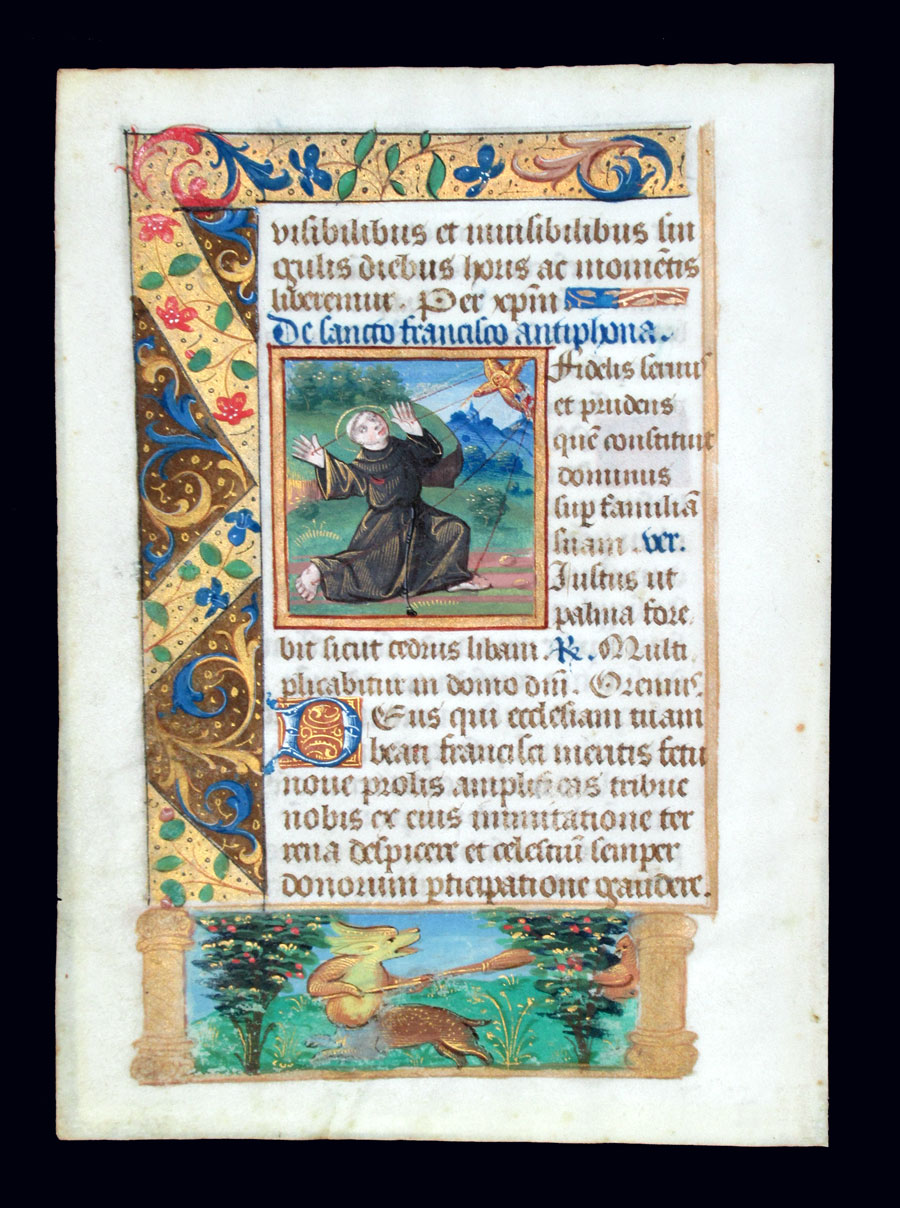 visibilibus et inuisibilibus sin
gulis diebus horis ac momẽtis
liberemur. Per xpm̃
De sancto francisco antiphona.
Fidelis seruus
et prudens
quẽ constituit
dominus
sup familiã
suam. ver.
Iustus ut
palma flore
bit sicut cedrus libani. R. Multi
plicabitur in domo dñi. Oremus.
DEus qui ecclesiam tuam
beati francisci meritis fetu
noue prolis amplificas tribue
nobis ex eius immitatione ter
rena despicere et celestiũ semper
donorum pticipatione gaudere.